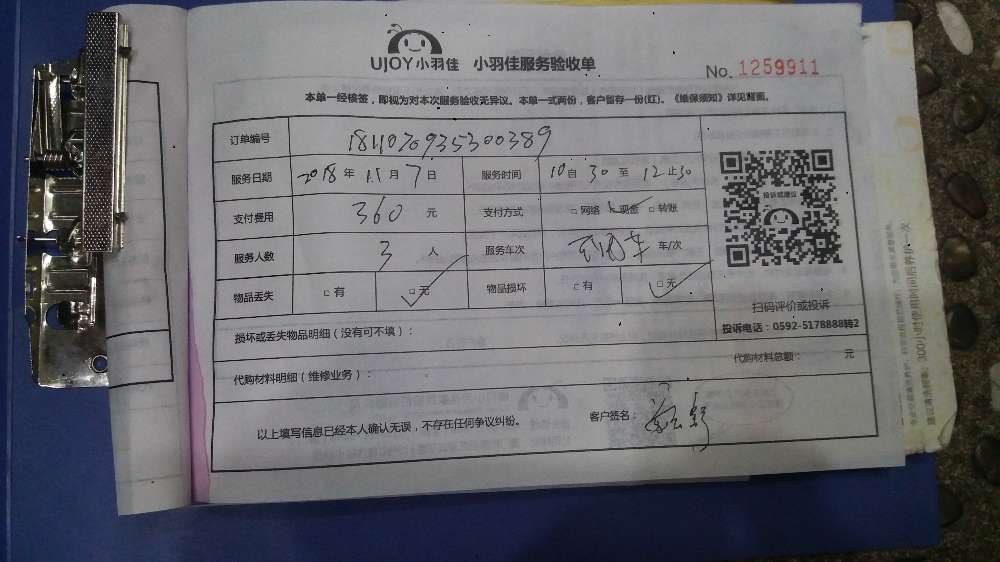 UJOY小羽佳 小羽佳服务验收单
No. 1259911
本单一经核签，即视为对本次服务验收无异议。本单一式两份，客户暂存一份(红)。《维保须知》详见背面。
订单编号 1811070935300389
服务日期 2018年11月7日 服务时间 10自30至12止30
支付费用 360元 支付方式 □网络 □现金 □转账
服务人数 3人 服务车次 车/次
物品丢失 □有 □无 物品损坏 □有 □无
投诉或建议
扫码评价或投诉
投诉电话：0592-5178888转2
损坏或丢失物品明细（没有可不填）：
代购材料明细（维修业务）： 代购材料总额： 元
以上填写信息已经本人确认无误，不存在任何争议纠纷。 客户签名：